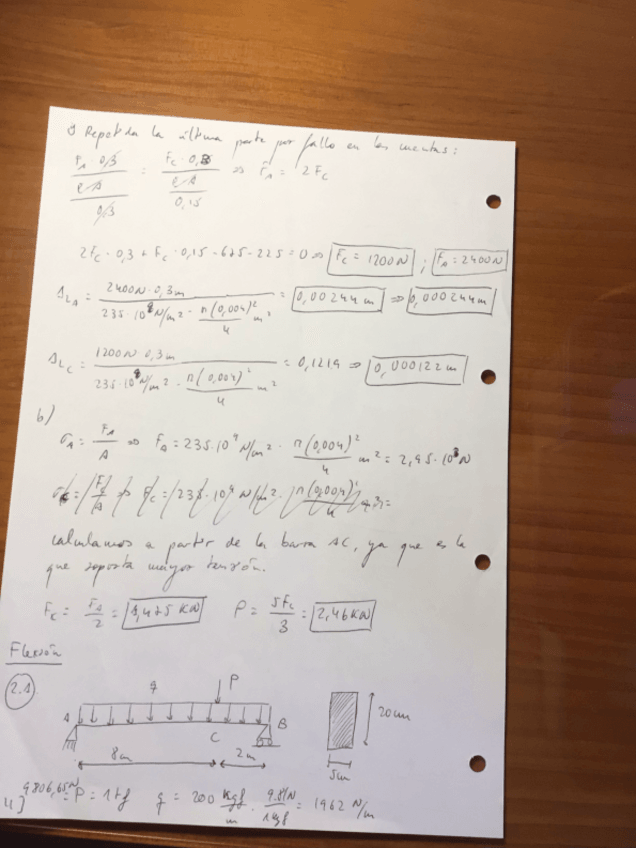 Repetida la última parte por fallo en las cuentas:
F_A · 0,3 / (e·A / 0,3) = F_C · 0,3 / (e·A / 0,15) ⇒ F_A = 2F_C
2F_C · 0,3 + F_C · 0,15 - 675 - 225 = 0 ⇒ F_C = 1200N ; F_A = 2400N
ΔL_A = 2400N · 0,3m / (235 · 10⁹ N/m² · π(0,004)²/4 m²) = 0,00244m ⇒ 0,000244m
ΔL_C = 1200N · 0,3m / (235 · 10⁹ N/m² · π(0,004)²/4 m²) = 0,1219 ⇒ 0,000122m
b)
σ_A = F_A/A ⇒ F_A = 235 · 10⁴ N/m² · π(0,004)²/4 m² = 2,95 · 10³ N
calculamos a partir de la barra AC, ya que es la
que soporta mayor tensión.
F_C = F_A/2 = 1,475 KN P = 5F_C/3 = 2,46 KN
Flexión
2.1
q P
A B
C
8m 2m
20cm
5cm
9806,65N = P = 1tf q = 200 kgf/m · 9.81N/1kgf = 1962 N/m